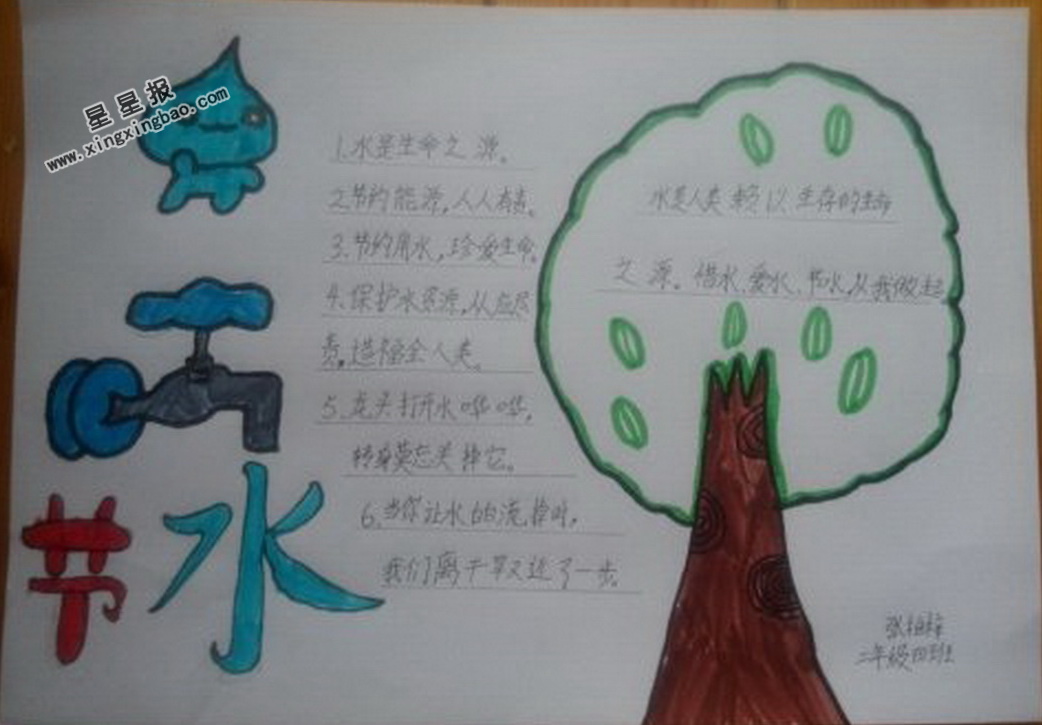 星星报
www.xingxingbao.com
1.水是生命之源。
2.节约能源,人人有责。
3.节约用水,珍爱生命。
4.保护水资源,从应尽
责,造福全人类。
5.龙头打开水哗哗,
转身莫忘关掉它。
6.当你让水白白流掉时,
我们离干旱又近了一步。
节水
水是人类赖以生存的生命
之源。惜水、爱水、节水,从我做起
二年级四班